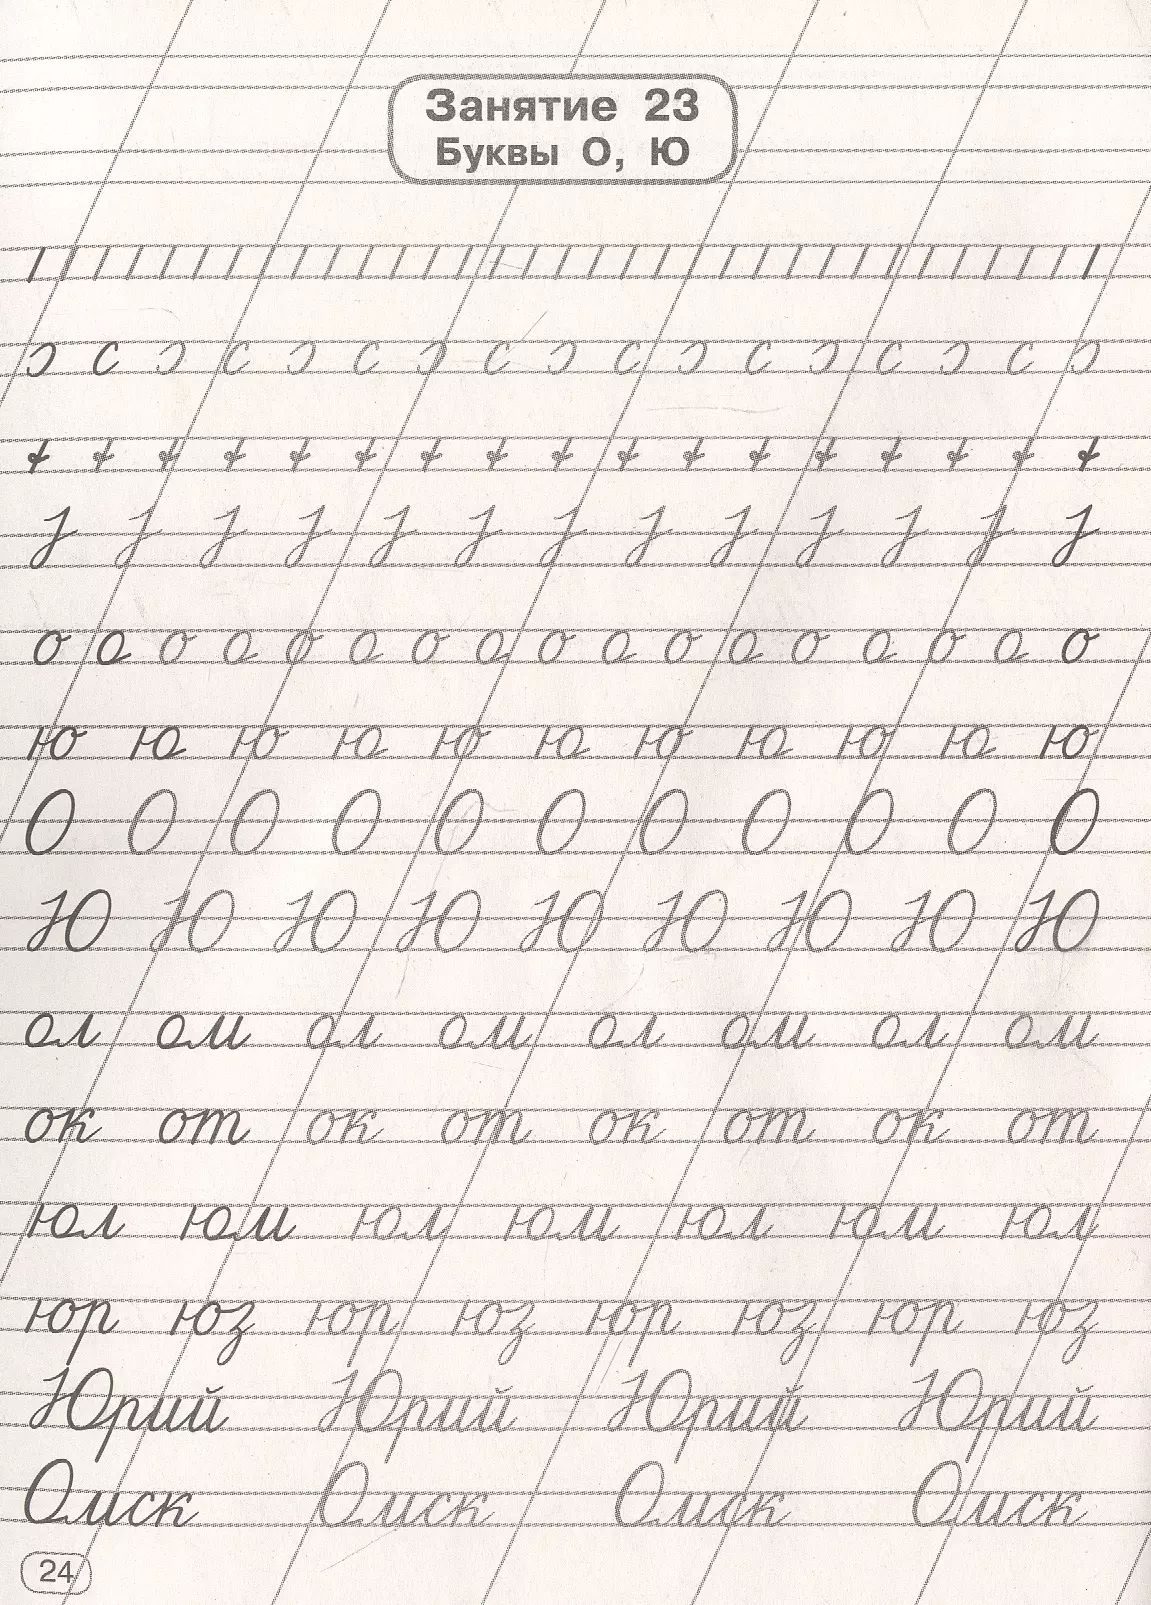 Занятие 23
Буквы О, Ю
о о о о о о о о о о о о о о о о о
ю ю ю ю ю ю ю ю ю ю ю
О О О О О О О О О О О
Ю Ю Ю Ю Ю Ю Ю Ю Ю
ол ом ол ом ол ом ол ом
ок от ок от ок от ок от
юл юм юл юм юл юм юл
юр юз юр юз юр юз юр юз
Юрий Юрий Юрий Юрий
Омск Омск Омск Омск
24